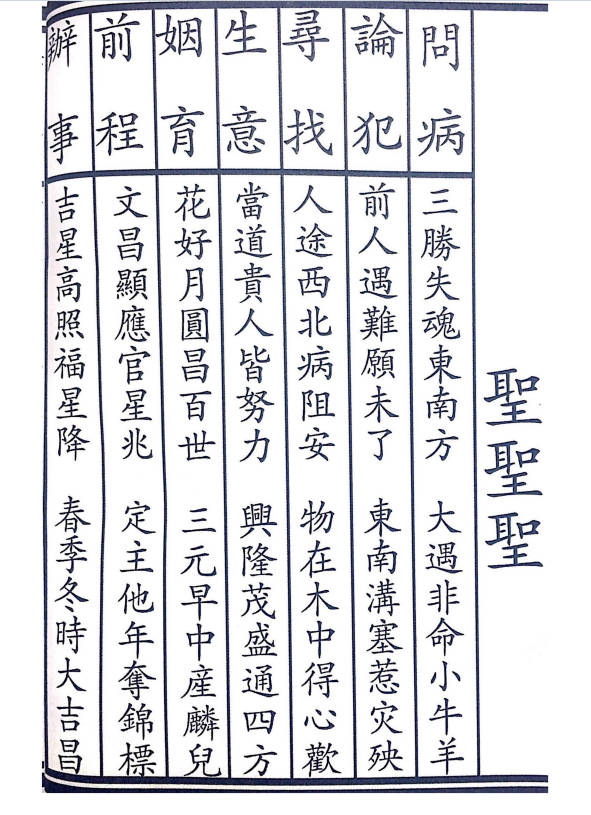 聖聖聖
問病
三勝失魂東南方 大遇非命小牛羊
論犯
前人遇難願未了 東南溝塞惹災殃
尋找
人途西北病阻安 物在木中得心歡
生意
當道貴人皆努力 興隆茂盛通四方
姻育
花好月圓昌百世 三元早中産麟兒
前程
文昌顯應官星兆 定主他年奪錦標
辦事
吉星高照福星降 春季冬時大吉昌